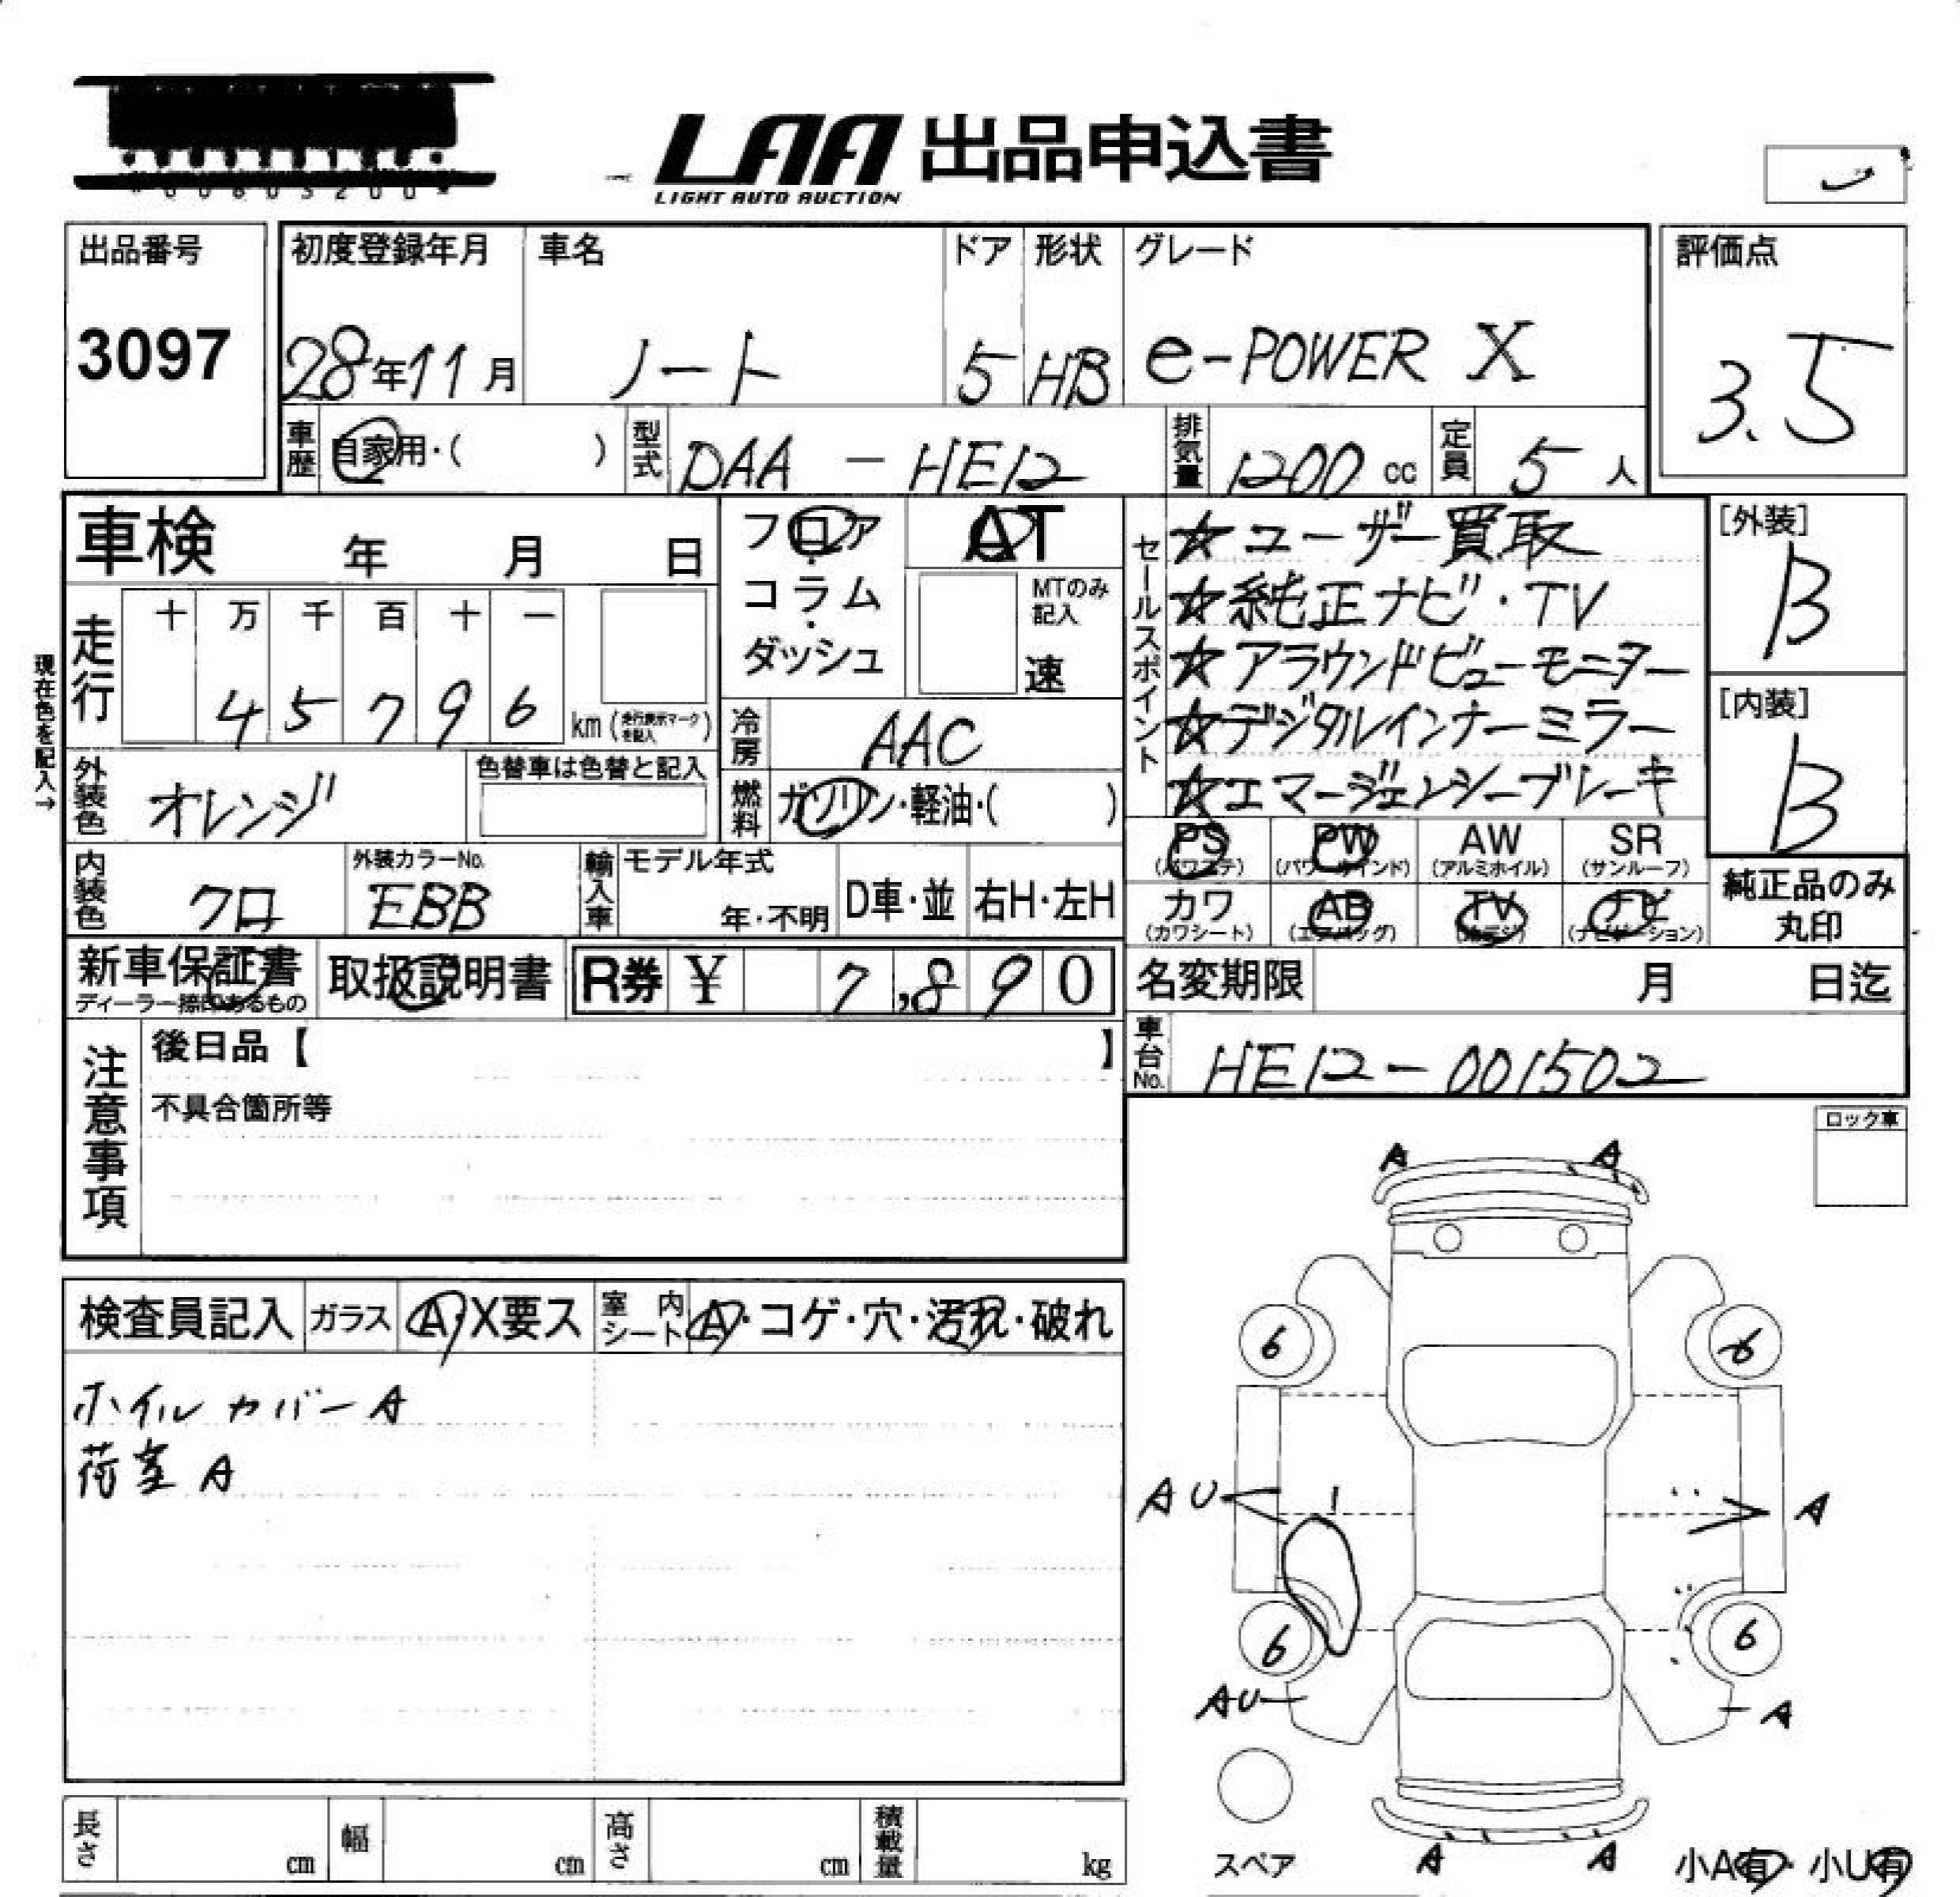 LAA 出品申込書
LIGHT AUTO AUCTION
出品番号
3097
初度登録年月
28年11月
車名
ノート
ドア
5
形状
HB
グレード
e-POWER X
評価点
3.5
車歴
自家用・( )
型式
DAA - HE12
排気量
1200 cc
定員
5 人
車検 年 月 日
フロア
コラム
ダッシュ
AT
MTのみ記入
速
セールスポイント
☆ユーザー買取
☆純正ナビ・TV
☆アラウンドビューモニター
☆デジタルインナーミラー
☆エマージェンシーブレーキ
[外装]
B
[内装]
B
現在色を記入→
走行
十 万 千 百 十 一
4 5 7 9 6
km (走行表示マークを記入)
冷房
AAC
外装色
オレンジ
色替車は色替と記入
燃料
ガソリン・軽油・( )
PS (パワステ)
PW (パワーウインド)
AW (アルミホイル)
SR (サンルーフ)
カワ (カワシート)
AB (エアバッグ)
TV
ナビ (ナビゲーション)
純正品のみ
丸印
内装色
クロ
外装カラーNo.
EBB
輸入車
モデル年式
年・不明
D車・並
右H・左H
新車保証書
ディーラー捺印あるもの
取扱説明書
R券 ¥ 7,890
名変期限 月 日迄
車台No.
HE12-001502
注意事項
後日品【 】
不具合箇所等
ロック車
検査員記入
ガラス
A・X要ス
室内シート
A・コゲ・穴・汚れ・破れ
ホイルカバーA
荷室A
A A
6 6
AU A
1
6 6
AU A
A A
スペア
小A有・小U有
長さ cm
幅 cm
高さ cm
積載量 kg